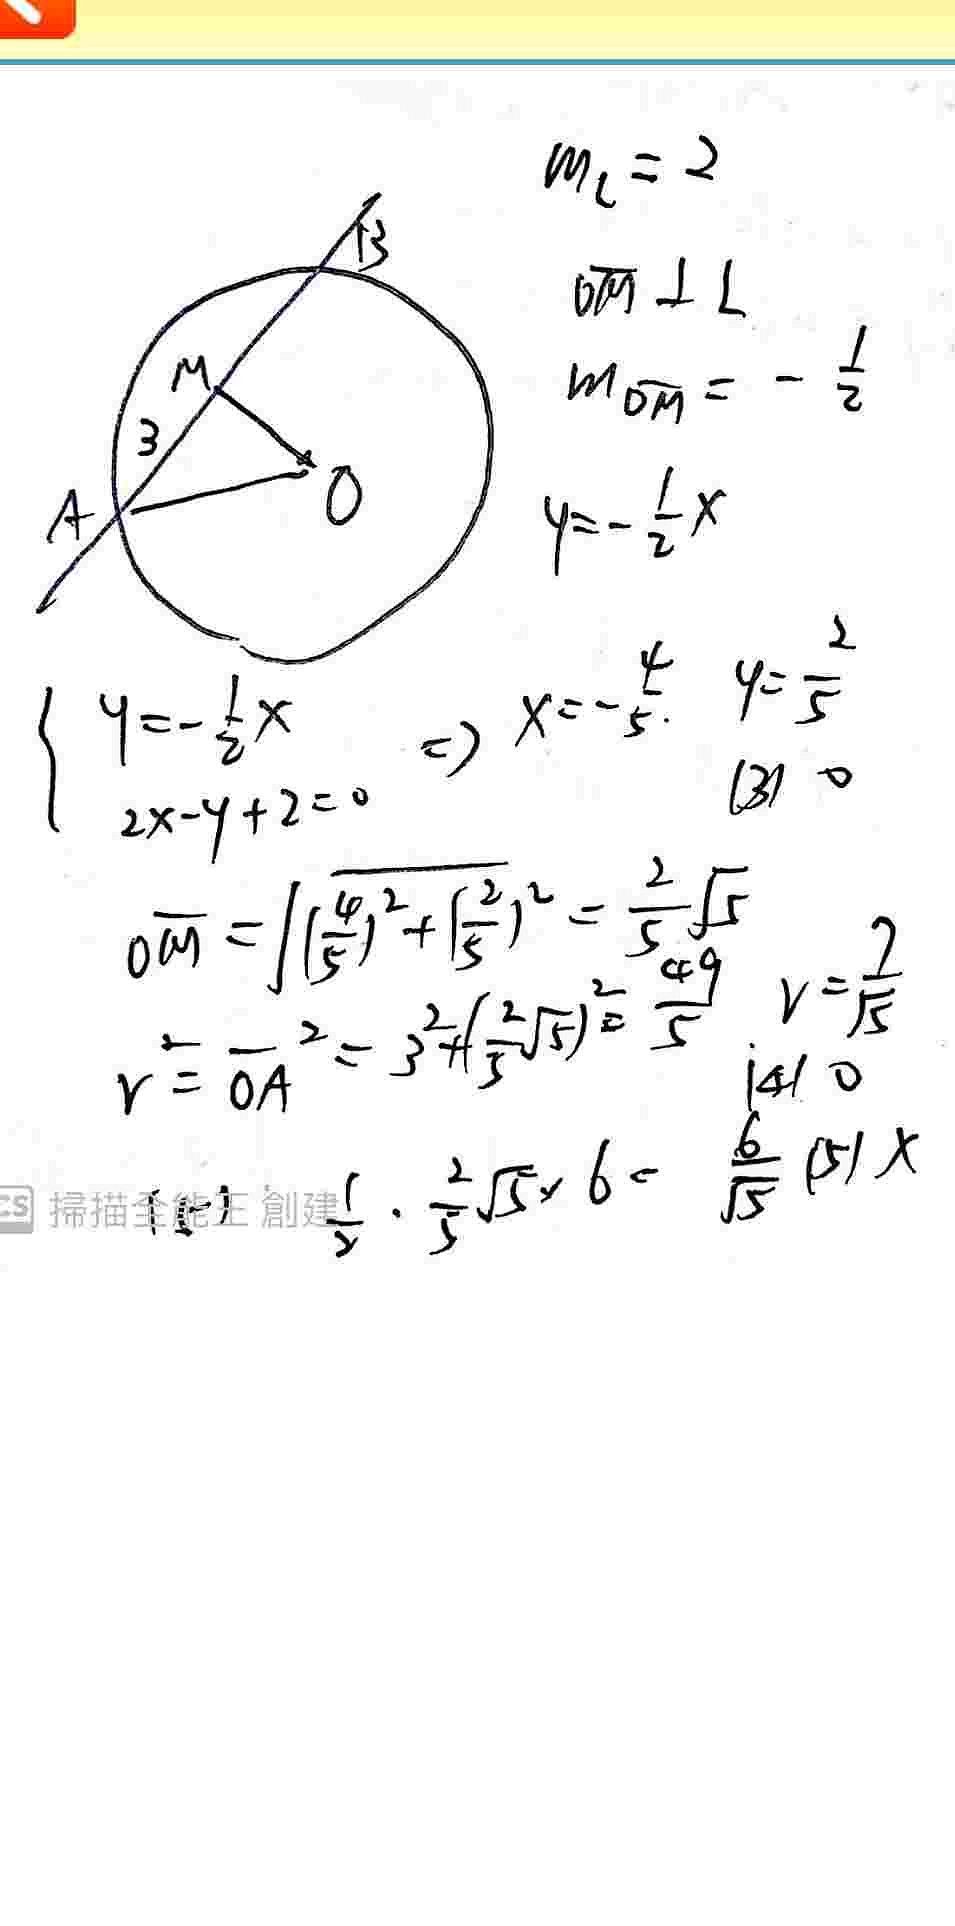 m_L = 2
B
OM ⊥ L
M
m_OM = - 1/2
3
A
O
y = - 1/2 x
{ y = - 1/2 x
2x - y + 2 = 0
=> x = - 4/5 . y = 2/5
(3) 0
OM = √(4/5)² + (2/5)² = 2/5 √5
r² = OA² = 3² + (2/5 √5)² = 49/5
r = 7/√5
(4) 0
1/2 · 2/5 √5 × 6 = 6/√5 (5) X
CS 掃描全能王 創建